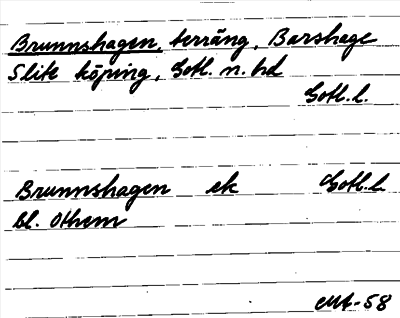 Brunnshagen, terräng, Barshage
Slite köping, Gotl. n. hd
Gotl. l.
Brunnshagen ek Gotl. l
Bl. Othem
-58